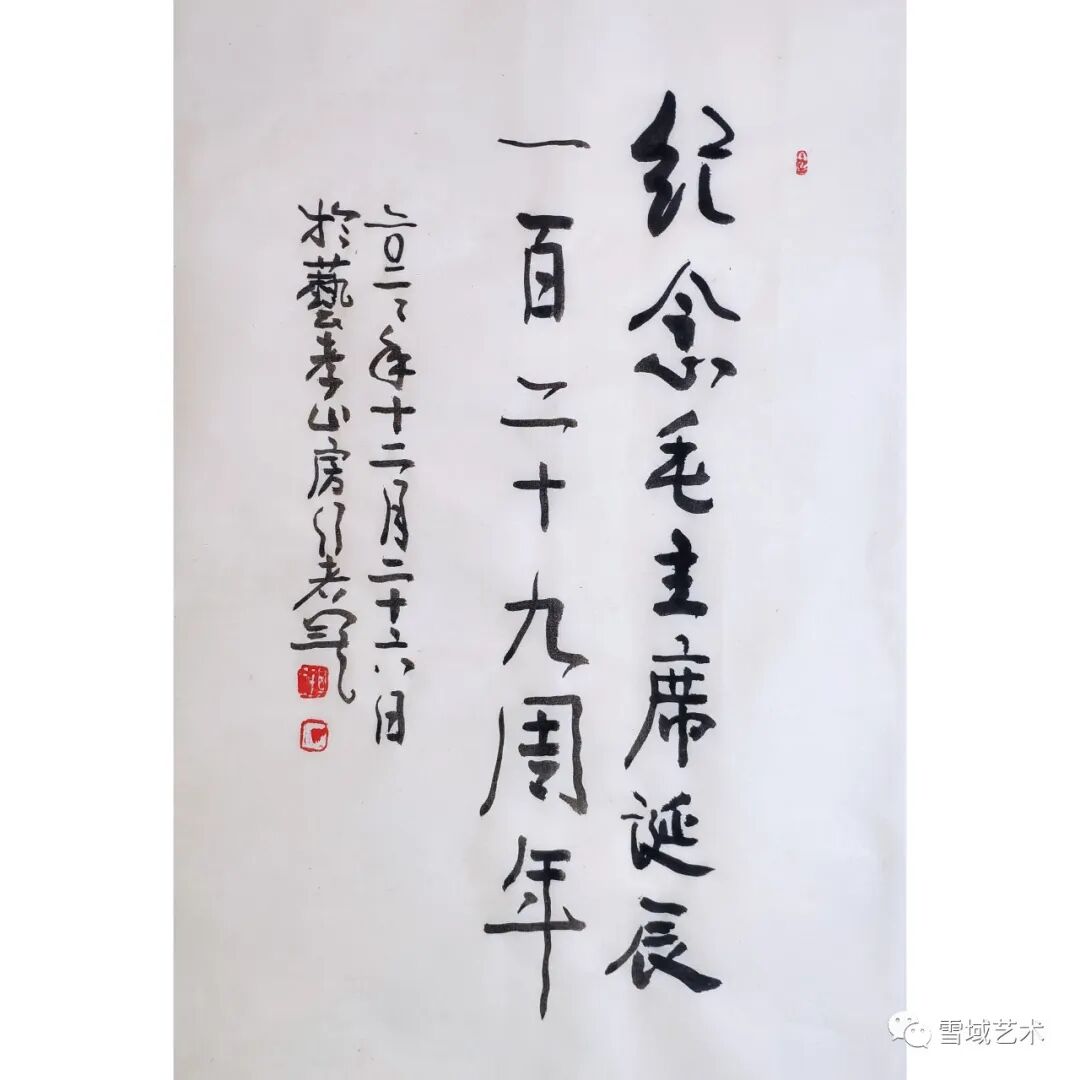 纪念毛主席诞辰
一百二十九周年
二〇二二年十二月二十六日
於藝孝山房
雪域艺术